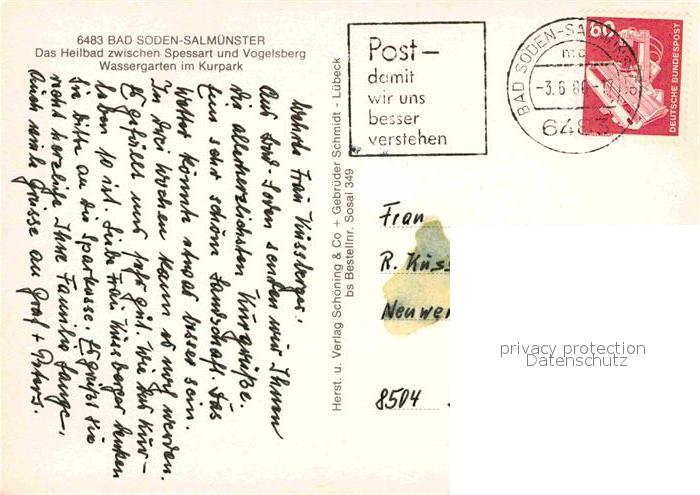 6483 BAD SODEN-SALMÜNSTER
Das Heilbad zwischen Spessart und Vogelsberg
Wassergarten im Kurpark
Post –
damit
wir uns
besser
verstehen
BAD SODEN-SA
-3.6.80-17
6483
60
DEUTSCHE BUNDESPOST
Frau
R. Küss
Neuwe
8504
privacy protection
Datenschutz
Herst. u. Verlag Schöning & Co + Gebrüder Schmidt - Lübeck
bs Bestellnr. Sosal 349
Frau Küssberger.
Aus Bad-Soden senden wir Ihnen
die allerherzlichsten Kurgrüße.
Eine sehr schöne Landschaft. Das
Wetter könnte etwas besser sein.
In drei Wochen kann es noch werden.
Es gefällt uns sehr gut. Wie das Kur-
leben so ist. Liebe Frau Küssberger denken
Sie bitte an die Sparkasse. Es grüßt Sie
recht herzlich Ihre Familie Lange,
Auch viele Grüsse an Graf + Peters.